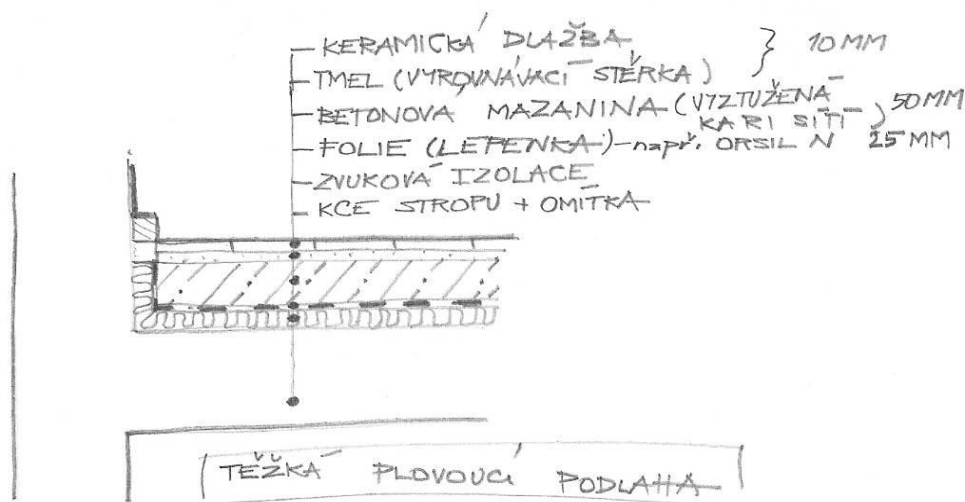 KERAMICKÁ DLAŽBA } 10 MM
TMEL (VYROVNÁVACÍ STĚRKA)
BETONOVÁ MAZANINA (VYZTUŽENÁ KARI SÍTÍ) 50 MM
FOLIE (LEPENKA) - např. ORSIL N 25 MM
ZVUKOVÁ IZOLACE
KCE STROPU + OMÍTKA
TĚŽKÁ PLOVOUCÍ PODLAHA